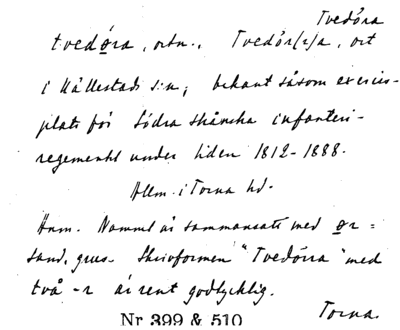 Tvedóra
tvedóra, ortn., Tvedór(r)a, ort
i Hällestads s:n; bekant såsom exercis-
plats för Södra skånska infanteri-
regementet under tiden 1812-1888.
Allm. i Torna hd.
Anm. Namnet är sammansatt med ør =
sand, grus. Skrivformen "Tvedórra" med
två -r är rent godtycklig.
Nr 399 & 510
Torna.